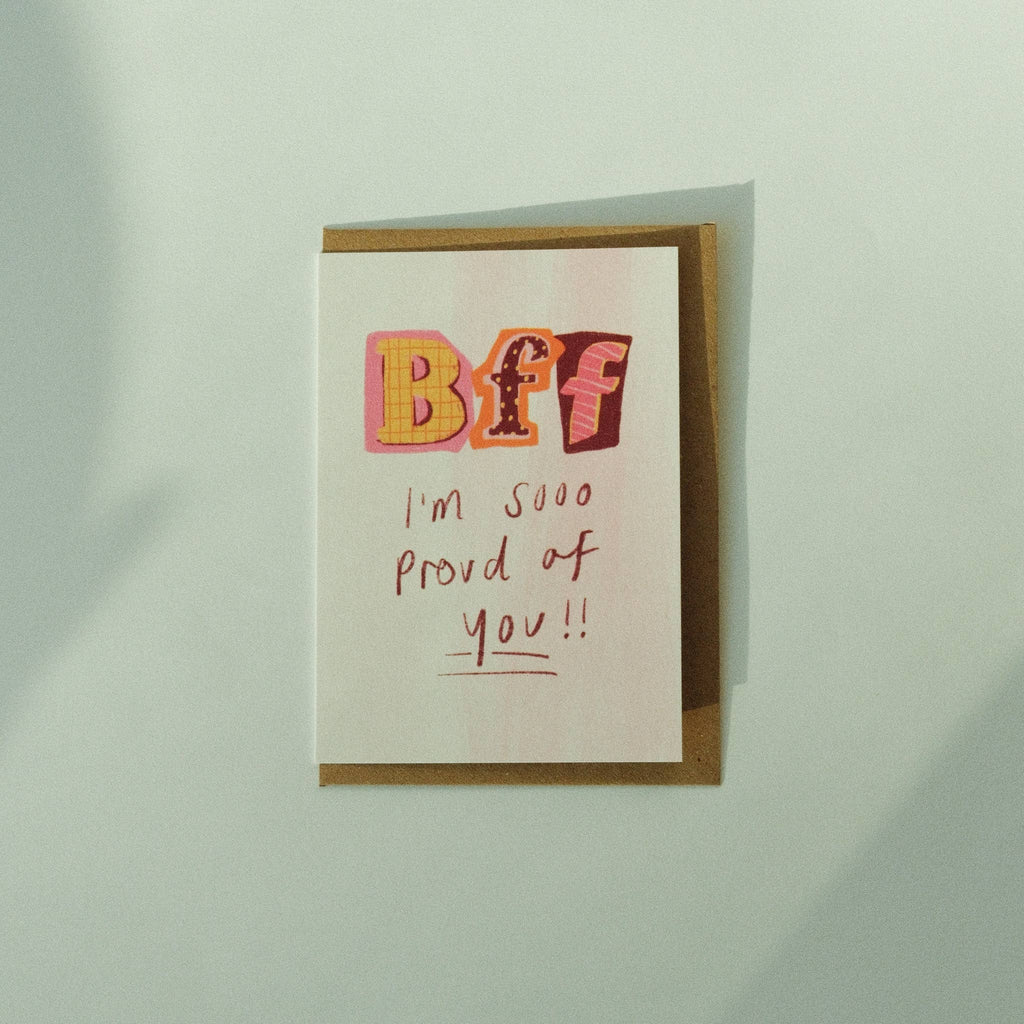 Bff
I'm sooo
proud of
you!!